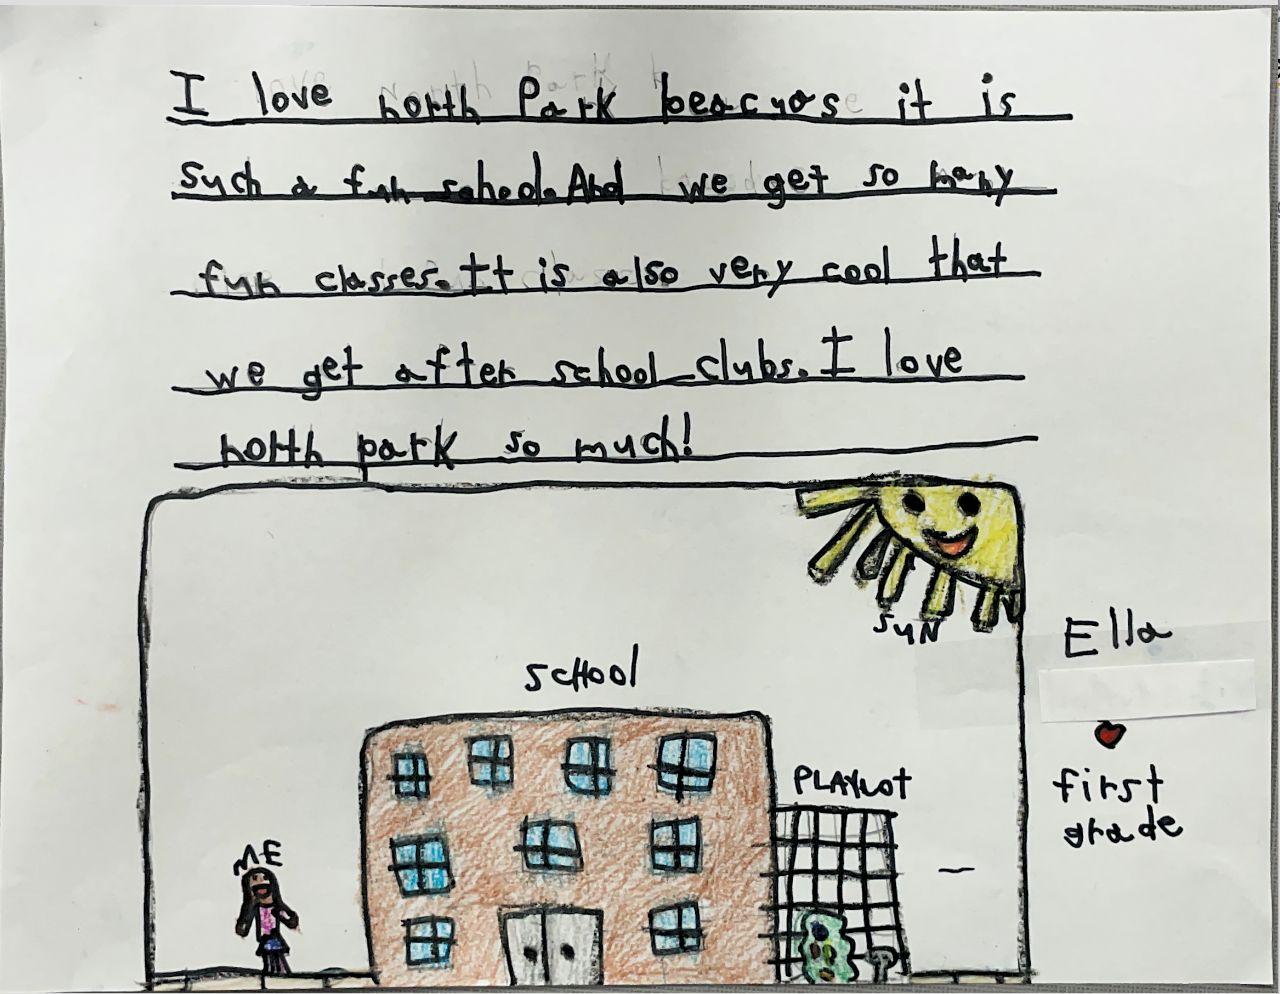 I love north Park beacuose it is
such a fun school. And we get so many
fun classes. It is also very cool that
we get after school clubs. I love
north park so much!
SUN
Ella
SCHOOL
first
grade
PLAYLOT
ME